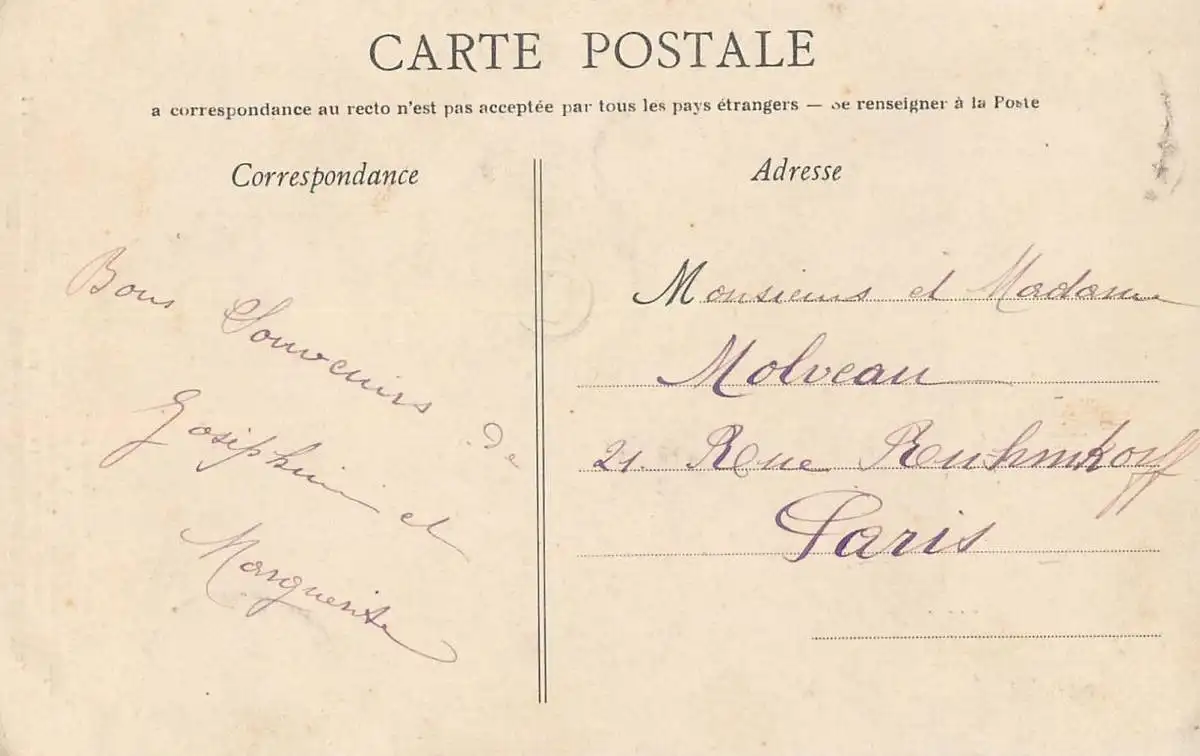 CARTE POSTALE
a correspondance au recto n'est pas acceptée par tous les pays étrangers — se renseigner à la Poste
Correspondance
Adresse
Bons Souvenirs de
Josephine et
Marguerite
Monsieurs et Madame
Molveau
21. Rue Ruhmkorff
Paris